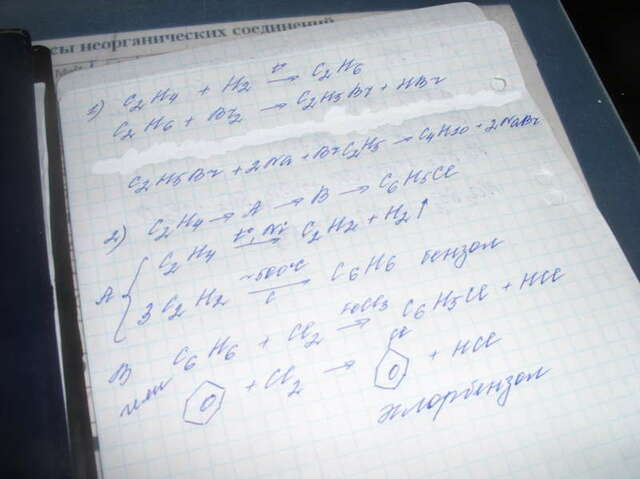 сы неорганических соединений
1) C2H4 + H2 t° → C2H6
C2H6 + Br2 → C2H5Br + HBr
C2H5Br + 2Na + BrC2H5 → C4H10 + 2NaBr
2) C2H4 → A → B → C6H5Cl
A { C2H4 t°, Ni → C2H2 + H2↑
3C2H2 ~500°C C → C6H6 бензол
B C6H6 + Cl2 FeCl3 → C6H5Cl + HCl
или + Cl2 → Cl + HCl
Хлорбензол